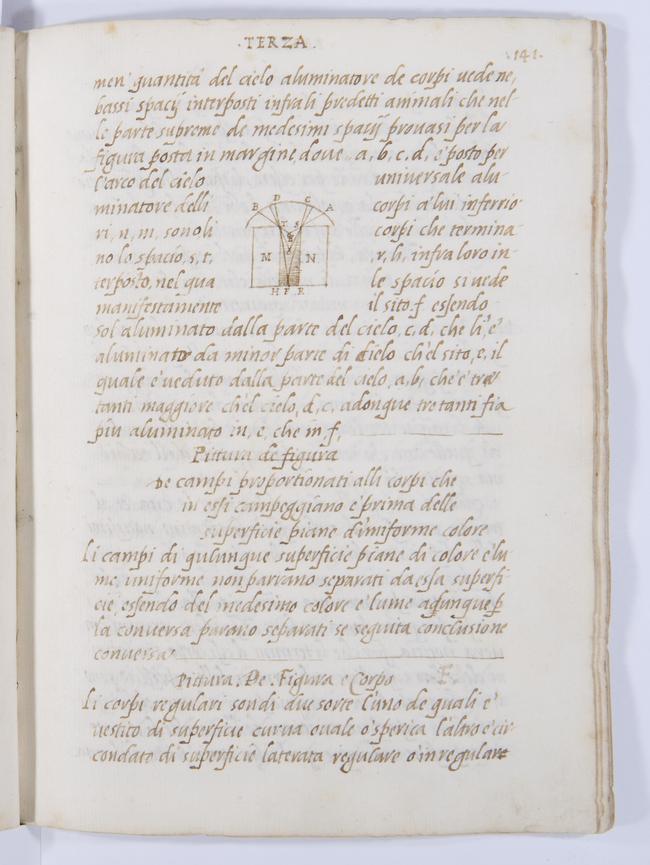 .TERZA.
.141.
men quantità del cielo aluminatore de corpi vede ne,
bassi spacij interposti infrali predetti animali che nel-
le parte supreme de medesimi spacij provasi per la
figura posta in margine dove, a, b, c, d, è posto per
l'arco del cielo universale alu-
minatore delli corpi a lui inferrio-
ri, n, m, sono li corpi che termina-
no lo spacio, s, t, r, h, infra loro in-
terposto, nel qua le spacio si vede
manifestamente il sito f. essendo
B D C A
T S
M N
H F E R
sol aluminato dalla parte del cielo, c, d, che lì, è
aluminato da minor parte di cielo ch'el sito, e, il
quale è veduto dalla parte del cielo, a, b, che è tre
tanti maggiore ch'el cielo, d, c, adonque tre tanti fia
più aluminato in, e, che in f,
Pittura de figura
De campi proportionati alli corpi che
in essi campeggiano e prima delle
superficie piane d'uniforme colore
Li campi di qulunque superficie piane di colore e lu
me, uniforme non parrano separati da essa superfi-
cie, essendo del medesimo colore e lume adunque p
la conversa parano separati se seguita conclusione
conversa
Pittura. De. Figura e Corpo F.
Li corpi regulari son di due sorte l'uno de quali è
vestito di superficie curva ovale o sperica l'altro è cir-
condato di superficie laterata regulare o inregulare